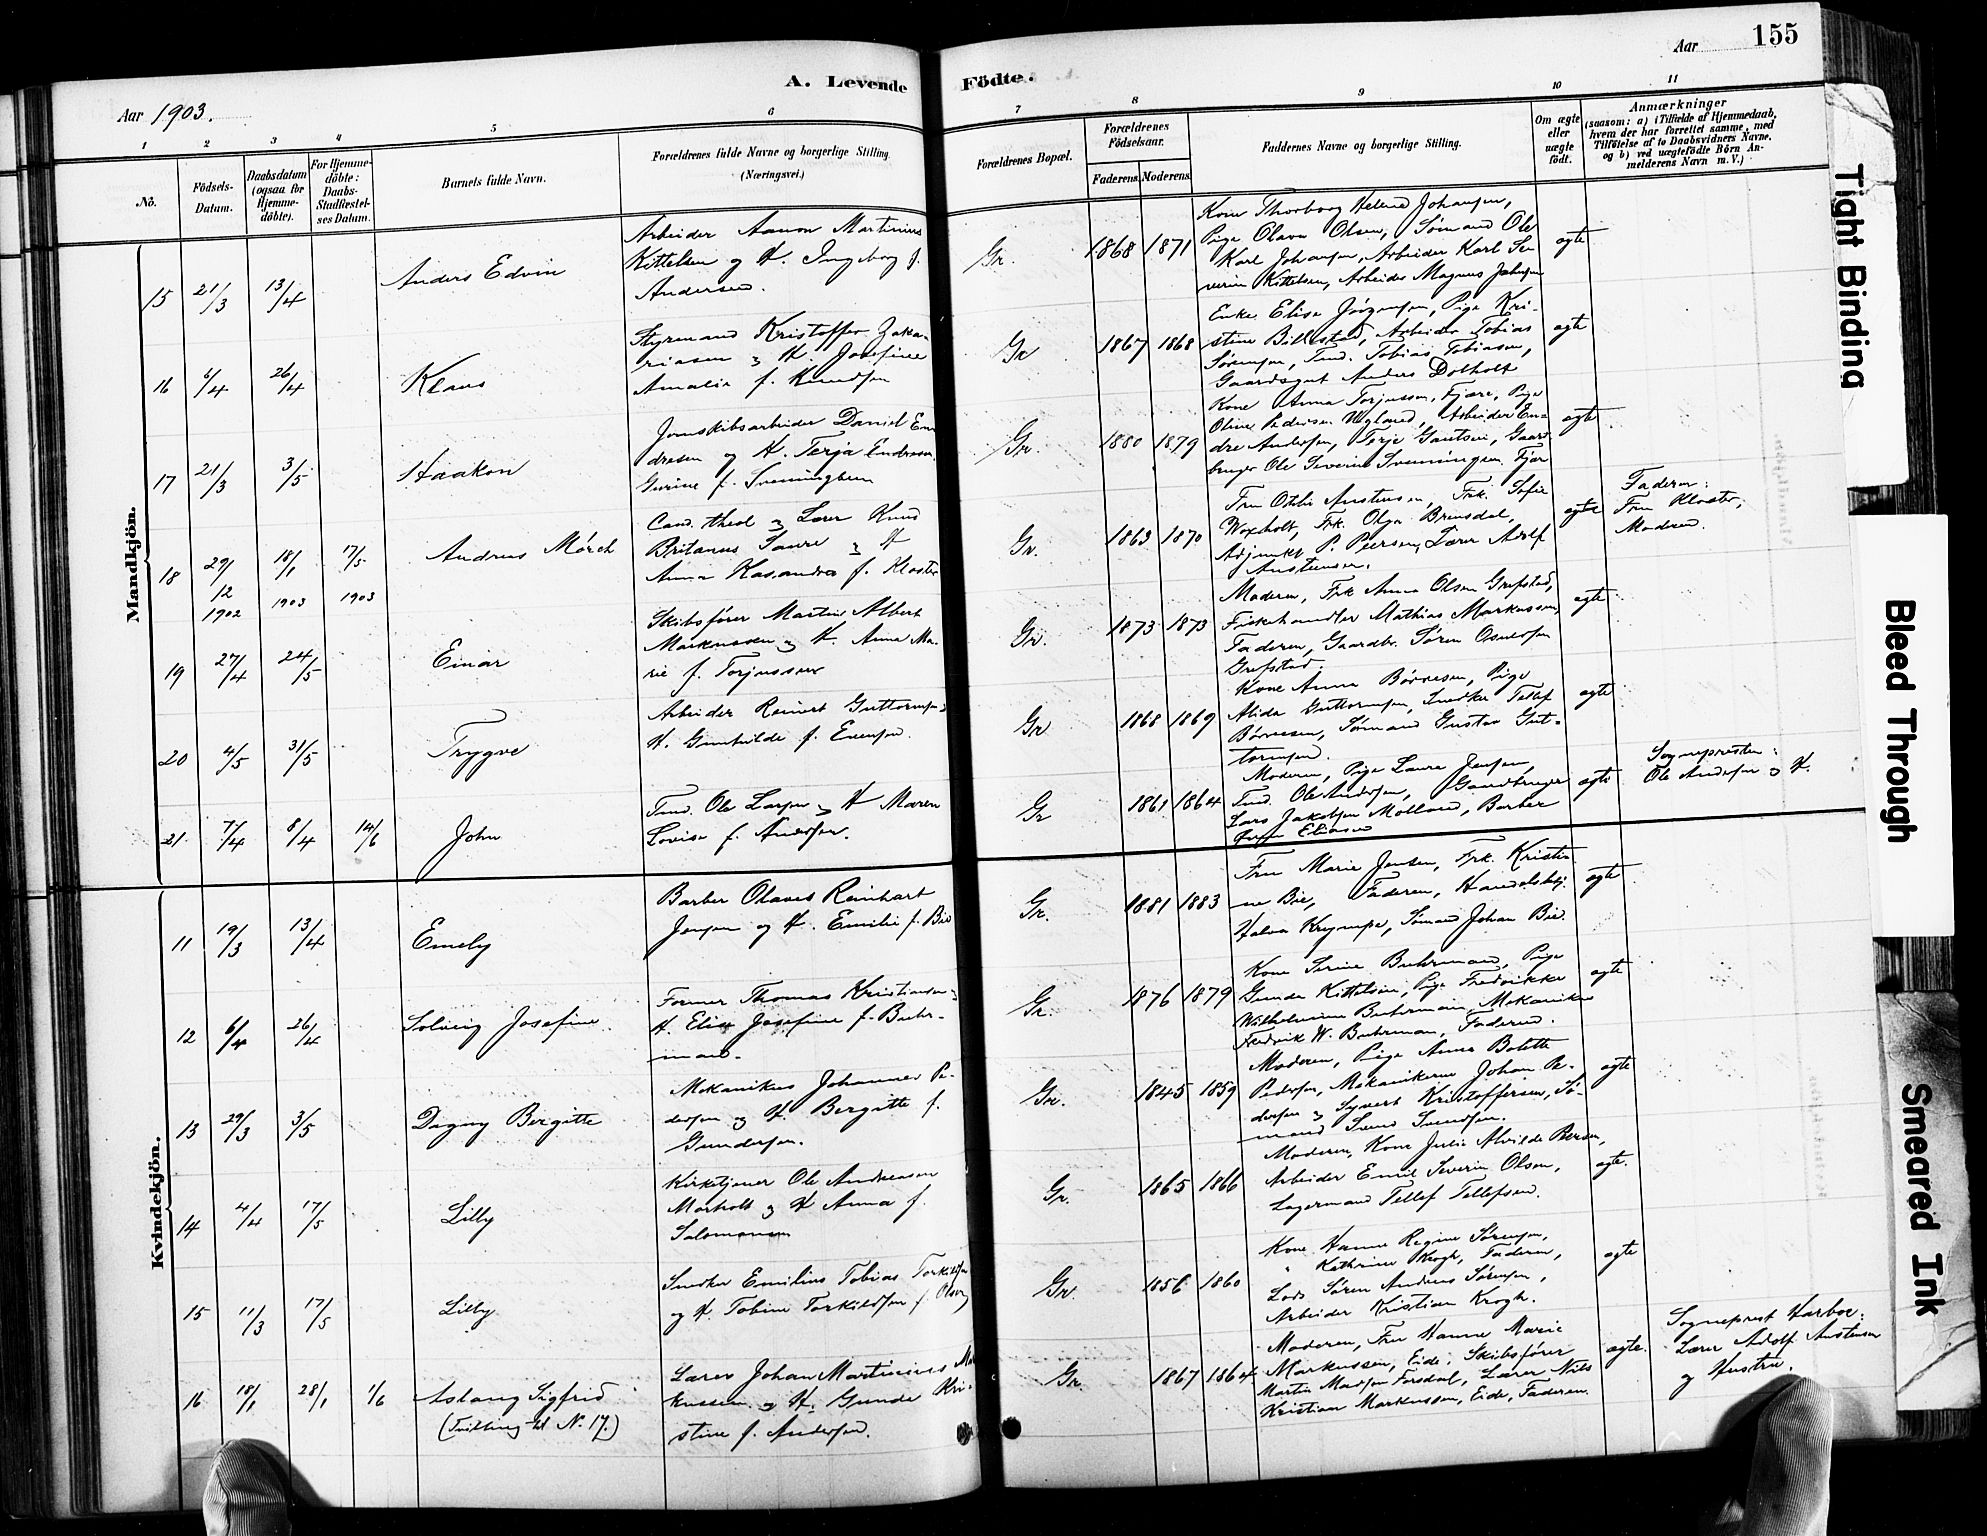 155
Aar
A. Levende Födte.
Aar 1903.
1 2 3 4 5 6 7 8 9 10 11
No.
Födsels-
Datum.
Daabsdatum
(ogsaa for
Hjemme-
döbte).
For Hjemme-
döbte:
Daabs-
Stadfæstel-
ses Datum.
Barnets fulde Navn.
Forældrenes fulde Navne og borgerlige Stilling.
(Næringsvei.)
Forældrenes Bopæl.
Forældrenes
Födselsaar.
Faderens. Moderens.
Faddernes Navne og borgerlige Stilling.
Om ægte
eller
uægte
födt.
Anmærkninger
(saasom: a) i Tilfælde af Hjemmedaab,
hvem der har forrettet samme, med
Tilföielse af to Daabsvidners Navne,
og b) ved uægtefödte Börn An-
melderens Navn m. V.)
Mandkjön.
15 21/3 13/4 Anders Edvin
Arbeider Aanon Martinius
Kittelsen og H. Ingeborg f.
Andersen.
Gr. 1868 1871
Kone Thorborg Helene Johansen,
Pige Olava Olsen, Sømand Ole
Karl Johansen, Arbeider Karl Se-
verin Kittelsen, Arbeider Magnus Johnsen
ægte
16 6/4 26/4 Klaus
Styrmand Kristoffer Zaka-
riasen og H. Josefine
Amalie f. Knudsen
Gr 1867 1868
Enke Elise Jørgensen, Pige Kri-
stine Billestad, Arbeider Tobias
Sørensen, Tmd. Tobias Tobiasen,
Gaardsgut Anders Dolholt
ægte
17 21/3 3/5 Haakon
Jernskibsarbeider Daniel En-
dresen og H. Terja Endresen
Gurine f. Svenningsen
Gr. 1880 1879
Kone Anna Torjussen, Fjære, Pige
Oline Pedersen Vegland, Arbeider En-
dre Andersen, Terje Gautsen, Gaard-
bruger Ole Severin Svenningsen Fjær
ægte
18 29/12 1902 18/1 1903 17/5 1903 Andreas Mörch
Cand. theol og Lærer Knud
Britanus Saure og H
Anna Kasandra f. Kloster
Gr. 1863 1870
Fru Othlie Austensen, Frk. Sofie
Woxholt, Frk. Olga Brinsdal,
Adjunkt P. Peersen, Lærer Adolf
Austensen.
ægte
Faderen:
Fru Kloster,
Moderen.
19 27/4 24/5 Einar
Skibsfører Martin Albert
Markussen og H. Anna Ma-
rie f. Torjussen
Gr. 1873 1873
Moderen, Frk Anna Olsen Grefstad,
Fiskehandler Mathias Markussen,
Faderen, Gaardbr. Søren Osuldsen
Grefstad.
ægte
20 4/5 31/5 Trygve
Arbeider Reinert Guttormsen
H. Gunhilde f. Evensen.
Gr 1868 1869
Kone Anna Børresen, Pige
Alida Guttormsen, Snedker Tellef
Børresen, Sømand Gustav Gut-
tormsen.
ægte
21 7/4 8/4 14/6 John
Tmd. Ole Larsen og H Maren
Lovise f. Andersen.
Gr 1861 1864
Moderen, Pige Laura Jensen,
Tmd. Ole Andersen, Gaardbruger
Lars Jakobsen Molland, Barber
Eliasen
ægte
Sognepresten:
Ole Andersen og H.
Kvindekjön.
11 19/3 13/4 Emely
Barber Olaves Reinhart
Jensen og H. Emilie f. Bie
Gr. 1881 1883
Fru Marie Jensen, Frk. Kristi-
ne Bie, Faderen, Handelsbtj.
Halvor Krympe, Sømand Johan Bie.
ægte
12 6/4 26/4 Solveig Josefine
Former Thomas Kristiansen og
H. Elise Josefine f. Buhr-
mann.
Gr. 1876 1879
Kone Serine Buhrmann, Pige
Gunda Kittelsen, Pige Fredrikke
Wilhelmine Buhrmann, Mekaniker
Fredrik W. Buhrman, Faderen.
ægte
13 29/3 3/5 Dagny Bergitte
Mekanikus Johannes Pe-
dersen og H. Bergitte f.
Gundersen.
Gr. 1845 1859
Moderen, Pige Anna Bolette
Pedersen, Mekanikerne Johan Pe-
dersen og Syvert Kristoffersen, Sø-
mand Svend Svendsen.
ægte
14 4/4 17/5 Lilly
Kirketjener Ole Andreasen
Morholt og H Anna f.
Salomonsen
Gr. 1865 1866
Moderen, Kone Julie Alvilde Bersen,
Arbeider Emil Severin Olsen,
Lagermand Tellef Tellefsen.
ægte.
15 11/3 17/5 Lilly
Snedker Emilius Tobias Torkildsen
og H. Tobine Torkildsen f. Olsen
Gr. 1856 1860
Kone Hanne Regine Sørensen,
" Kathrine Krogh, Faderen,
Lods Søren Andreas Sørensen,
Arbeider Kristian Krogh.
ægte
16 18/1 28/1 1/6 Aslaug Sigfrid
(Tvilling til N. 17.)
Lærer Johan Martinius Mar-
kussen og H. Gunda Kri-
stine f. Andersen.
Gr. 1867 1864
Moderen, Fru Hanne Marie
Markussen, Eide, Skibsfører
Martin Madsen Forsdal, Lærer Nils
Kristian Markussen, Eide, Faderen.
ægte.
Sogneprest Harboe:
Lærer Adolf Austensen
og Hustru.
Tight Binding
Bleed Through
Smeared Ink